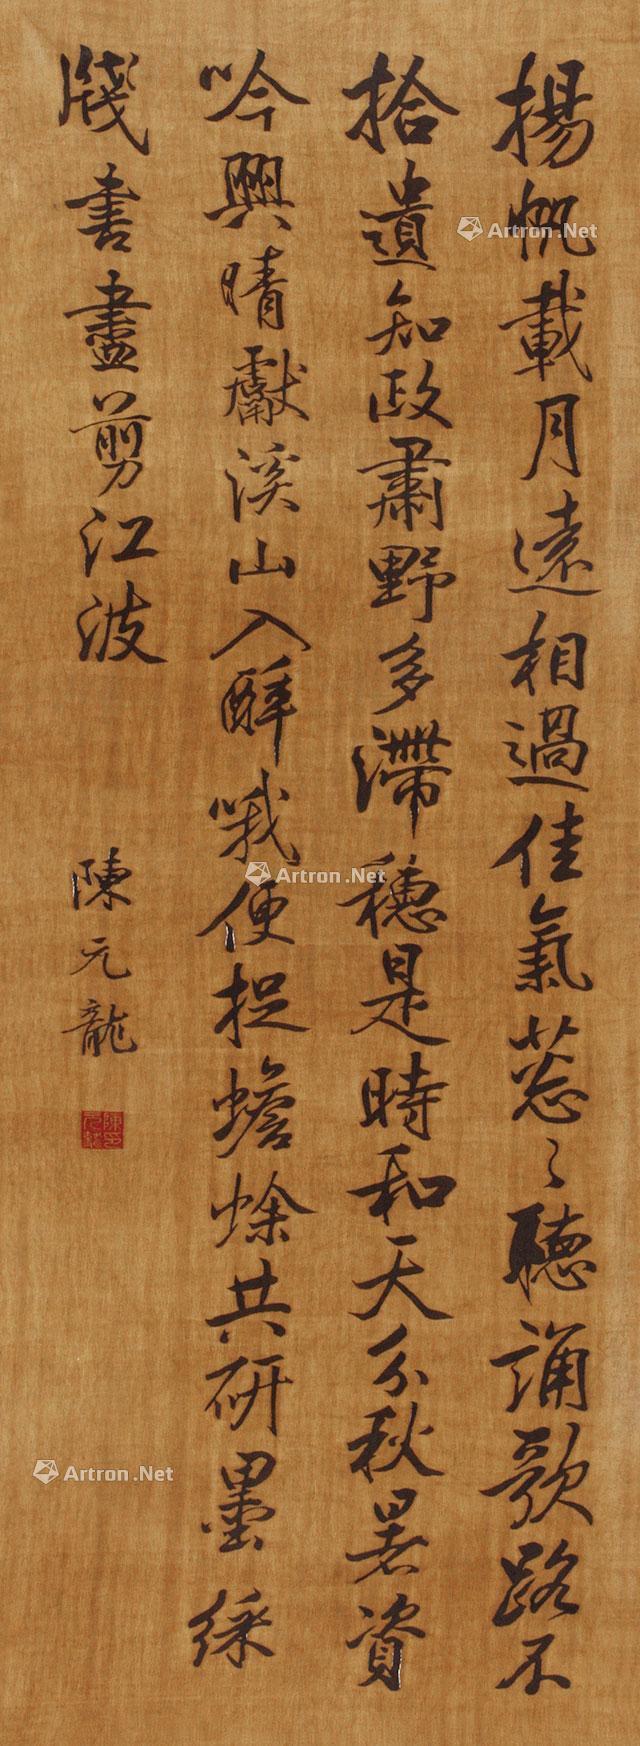 揚帆載月遠相過佳氣蔥〻聽誦歌路不
拾遺知政肅野多滯穗是時和天分秋暑資
吟興晴獻溪山入醉哦便捉蟾蜍共研墨綵
牋書盡剪江波
陳元龍
Artron.Net
Artron.Net
Artron.Net